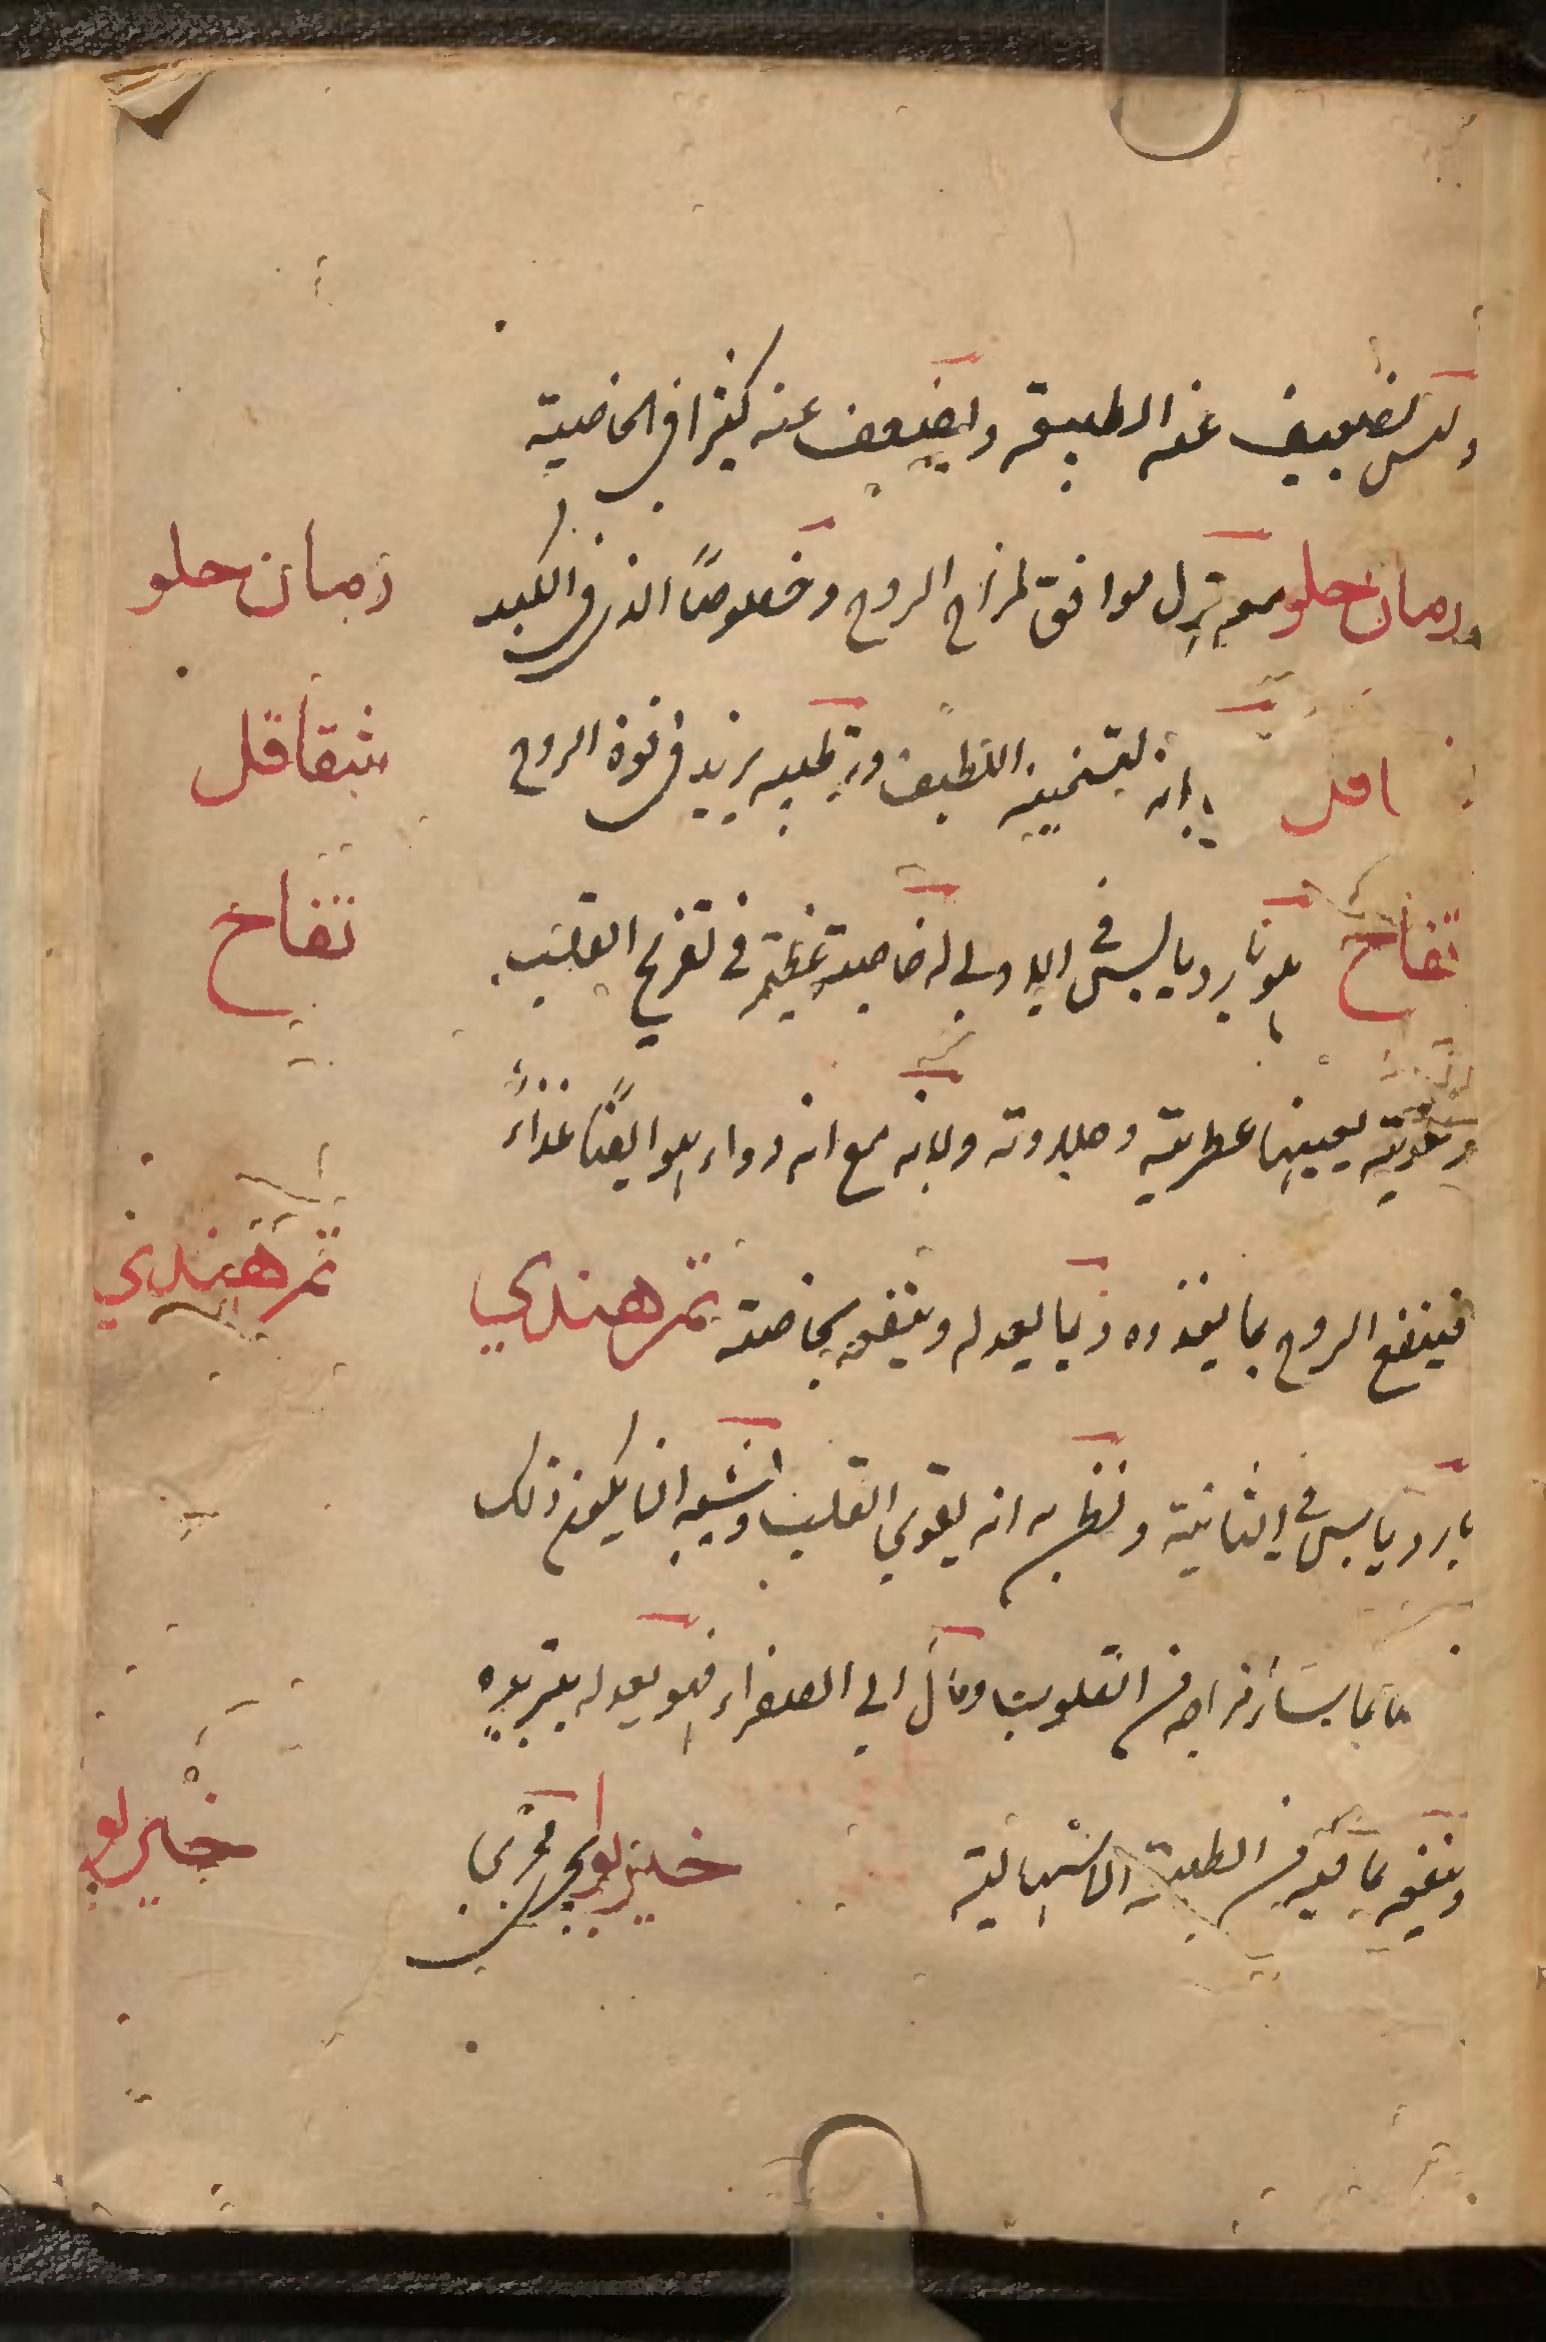 وليس تضعيف عنه الطبيعة ويضعف عنه كثيرا في الخاصية
ورمان حلو معتدل موافق لمزاج الروح وخصوصًا الذي في الكبد
رمان حلو
اقل انه لتسخينه اللطيف وترطيبه يزيد في قوة الروح
شقاقل
تفاح هو بارد يابس في الاولى له خاصية عظيمة في تفريح القلب
تفاح
وتقويته يعينها عطريته وحلاوته ولانه مع انه دواء هو ايضًا غذاءً
فينفع الروح بما يغذوه وبما يعدله وينفعه بخاصته تمر هندي
تمر هندي
بارد يابس في الثانية ونظن به انه يقوي القلب ويشبه ان يكون ذلك
مزاجه من القلوب ومال الى الصفراء فهو يعدله بتبريده
وينفعه بما فيه من الطبيعة الاسهالية خيربوا
خيربو